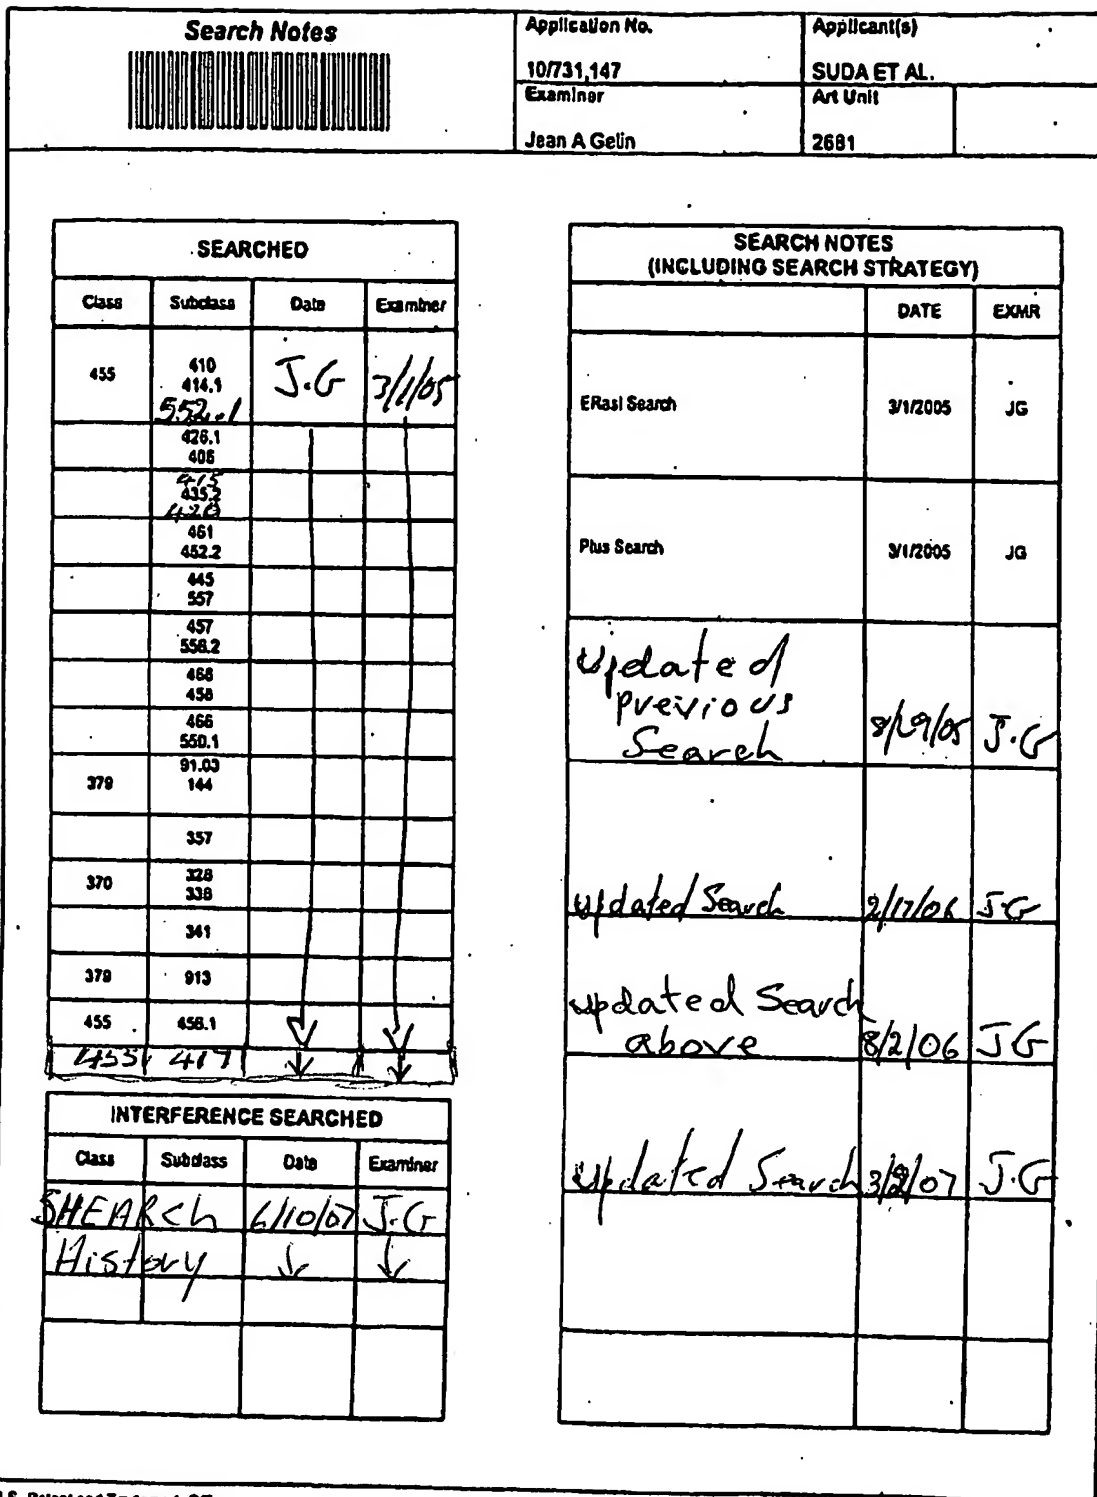 Search Notes
Application No.
Applicant(s)
10/731,147
SUDA ET AL.
Examiner
Art Unit
Jean A Gelin
2681
SEARCHED
Class Subclass Date Examiner
455 410 J.G 3/1/05
414.1
552.1
426.1
406
415
435.2
420
461
452.2
445
557
457
556.2
466
458
466
550.1
91.03
379 144
357
370 328
338
341
379 913
455 456.1
455 417
INTERFERENCE SEARCHED
Class Subclass Date Examiner
SHEARch 6/10/07 J.G
History
SEARCH NOTES
(INCLUDING SEARCH STRATEGY)
DATE EXMR
ERasl Search 3/1/2005 JG
Plus Search 3/1/2005 JG
Updated
previous
Search 8/29/05 J.G
updated Search 2/17/06 J.G
updated Search
above 8/2/06 JG
updated Search 3/2/07 J.G